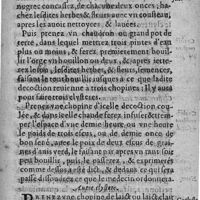 nugrec concassez, de chacune deux onces; ha-
chez lesdites herbes & fleurs auec vn cousteau,
apres les auoir nettoyees, & lauées.
Puis prenez vn chaudron ou grand pot de
terre, dans lequel mettrez trois pintes d'eau
plus ou moins, & ferez premierement bouil-
lir l'orge vn bouillon ou deux, & apres y adiou-
sterez lesdites herbes, & fleurs, semences,
faisant le tout bouillir iusques à ce que ladite
decoction reuienne à trois chopines: Il y aura
pour faire trois clysteres.
Prenez vne chopine d'icelle decoction cou-
lée, & dans icelle chaude ferez infuser & trem-
per l'espace d'vne demie heure ou vne heure
le poids de trois escus, ou de demie once de bon
sené, apres le poids de deux escus de gran-
d'anis verd, & le faisant par apres vn tant soit
peu bouillir, puis le passerez, & exprimerez
comme dessus est dit, & dedans ce qui sera
passé dissoudrez ce que le medecin ordonnera.
Autre clystere.
PRenez vne chopine de laict ou laict clair